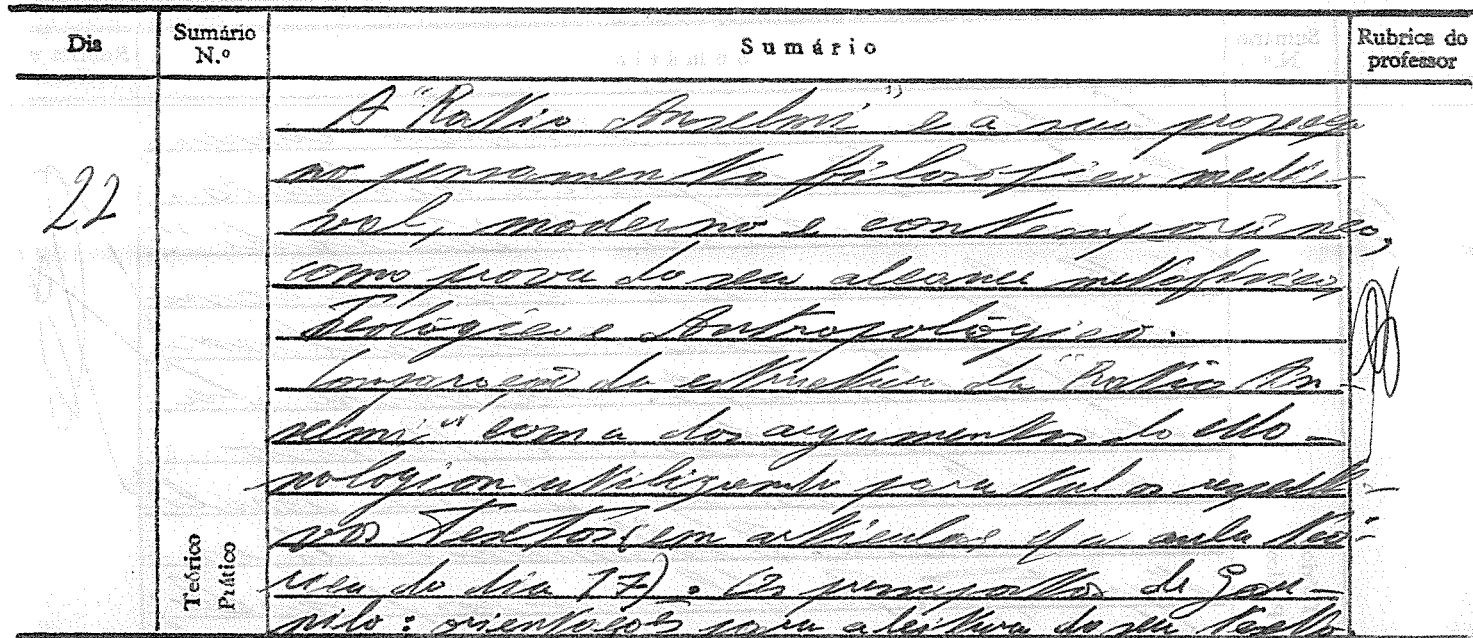 Dia
Sumário N.º
Sumário
Rubrica do professor
22
A "Ratio Anselmi" e a sua
no pensamento filosófico medie-
val, moderno e contemporâneo,
como prova do seu alcance metafísico,
Teológico e Antropológico.
Comparação da estrutura da "Ratio An-
selmi" com a dos argumentos do Mo-
nologion utilizando para tal os respecti-
vos textos (em articulação c/ a aula teó-
rica do dia 17). Os de Gau-
nilo: orientações para a leitura do seu texto.
Teórico
Prático